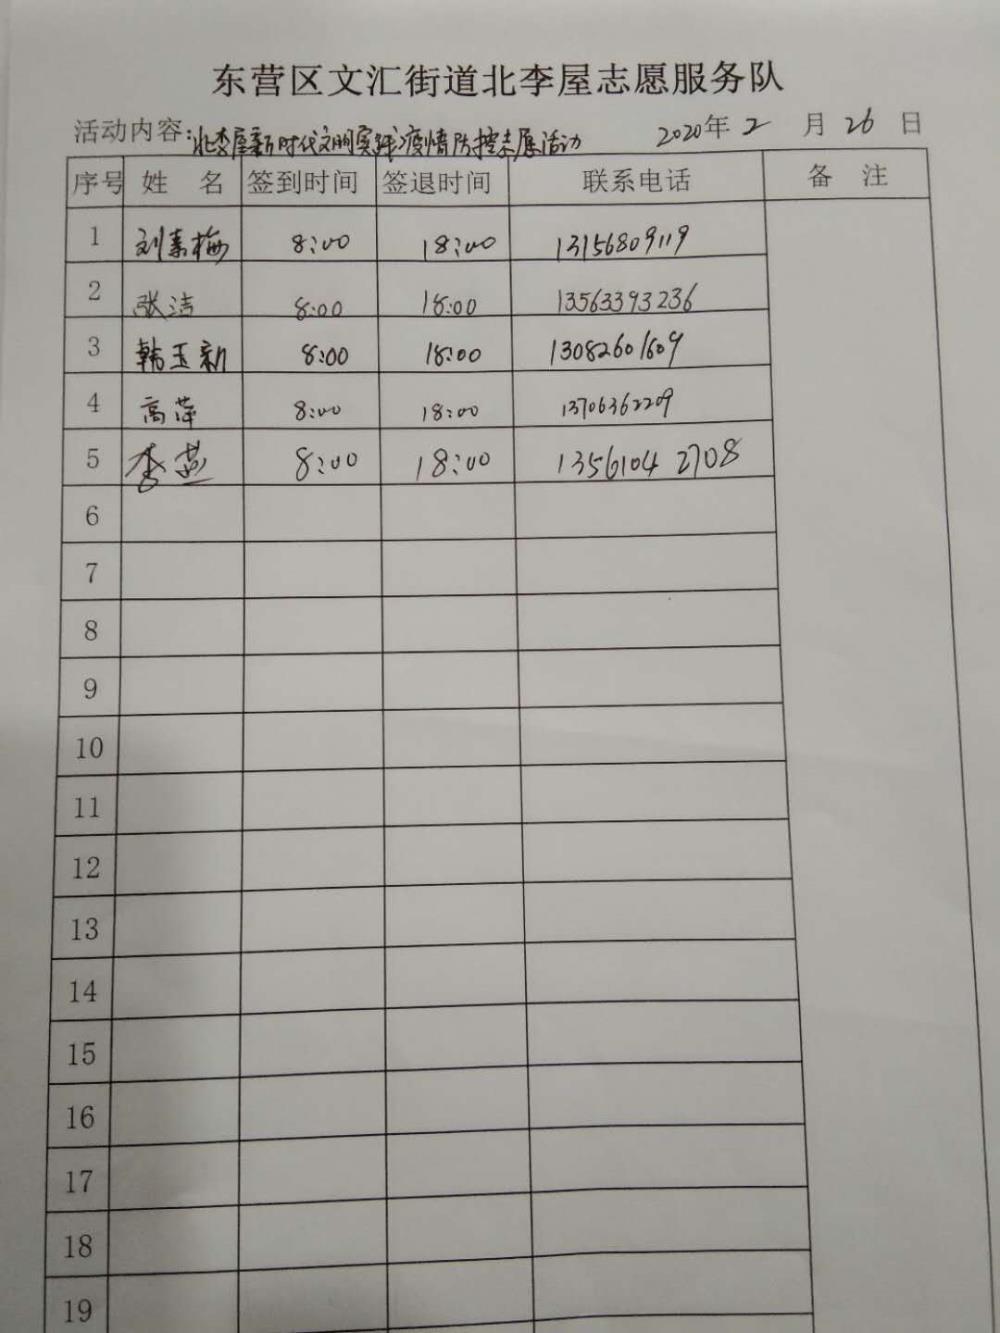 东营区文汇街道北李屋志愿服务队
活动内容:北李屋新时代文明实践疫情防控志愿活动 2020年2月26日
序号 姓 名 签到时间 签退时间 联系电话 备 注
1 刘素梅 8:00 18:00 13156809119
2 张洁 8:00 18:00 13563393236
3 韩玉新 8:00 18:00 13082601609
4 高萍 8:00 18:00 13706362209
5 李燕 8:00 18:00 13561042708
6
7
8
9
10
11
12
13
14
15
16
17
18
19